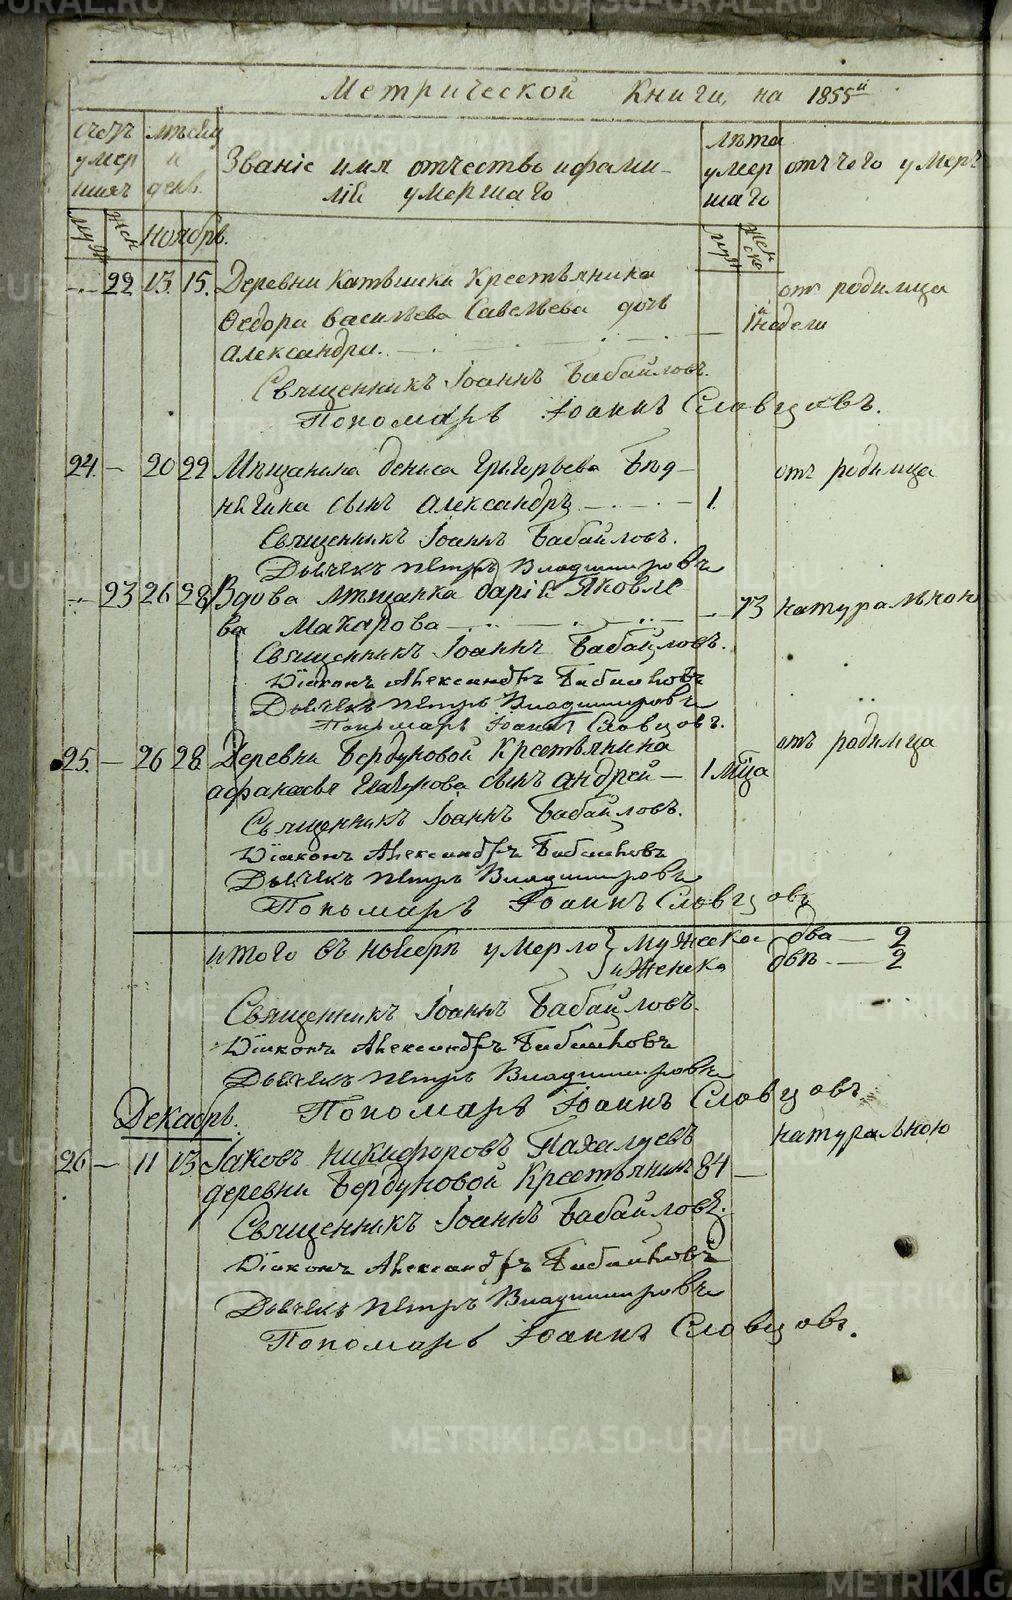 Метрической Книги, на 1855й
Счетъ умер шихъ
мѣсяц и день.
Званіе имя отчество и фами-
лія умершаго
лѣта умер шаго
отъ чего умеръ
муж жен
Ноябрь.
муж жен ске
22 13. 15. Деревни Катышки Крестьянина
от родимца
Ѳедора Васильева Савельева дочь
1й недели
Александра.
Священникъ Іоаннъ Бабайловъ.
Пономарь Іоаннъ Словцовъ.
24. – 20 22 Мѣщанина Дениса Григорьева Бѣд-
отъ родимца
нягина сынъ Александръ – 1.
Священникъ Іоаннъ Бабайловъ.
Дьячекъ Петръ Владимировъ
23 26 28 Вдова мѣщанка Дарія Яковле
73 натуральною
ва Макарова
Священникъ Іоаннъ Бабайловъ.
Діаконъ Александръ Бабайловъ
Дьячекъ Петръ Владимировъ
Пономарь Іоаннъ Словцовъ.
25. – 26 28 Деревни Бердуковой Крестьянина
отъ родимца
Афанасья сынъ Андрей – 1 мца
Священникъ Іоаннъ Бабайловъ.
Діаконъ Александръ Бабайловъ
Дьячекъ Петръ Владимировъ
Пономарь Іоаннъ Словцовъ
итого въ ноябрѣ умерло} мужска два – 2
и женска двѣ. – 2
Священникъ Іоаннъ Бабайловъ.
Діаконъ Александръ Бабайловъ
Дьячекъ Петръ Владимировъ
Пономарь Іоаннъ Словцовъ.
Декабрь.
натуральною
26 – 11 13 Іаковъ Никифоровъ Пахалуевъ
деревни Бердуковой Крестьянинъ 84 –
Священникъ Іоаннъ Бабайловъ.
Діаконъ Александръ Бабайловъ
Дьячекъ Петръ Владимировъ
Пономарь Іоаннъ Словцовъ.
METRIKI.GASO-URAL.RU